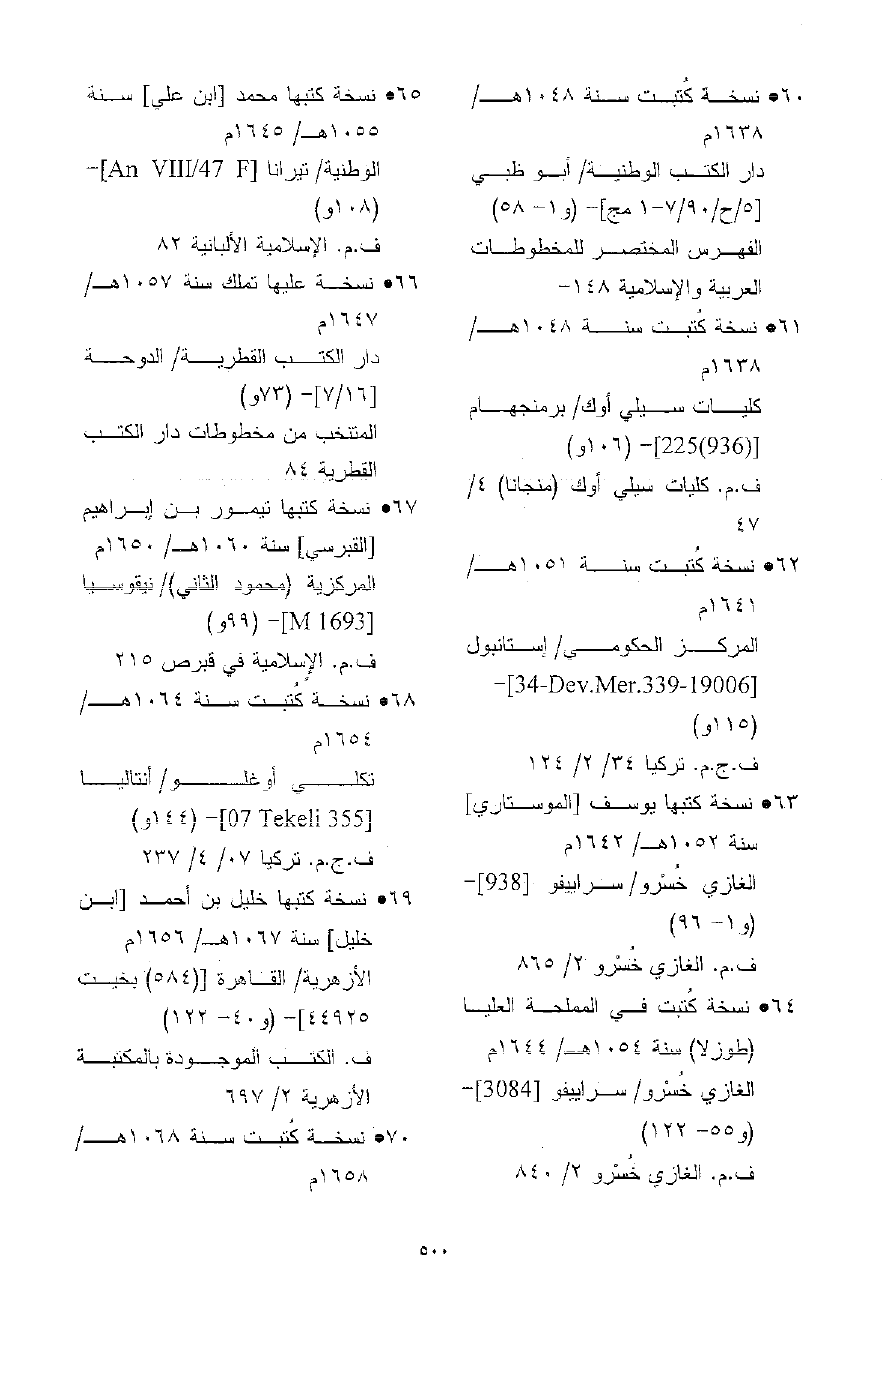 ٦٠• نسخة كُتبت سنة ١٠٤٨هـ/
١٦٣٨م
دار الكتب الوطنية/ أبو ظبي
[٥/ح/٧/٩٠-١ مج]- (و١- ٥٨)
الفهرس المختصر للمخطوطات
العربية والإسلامية ١٤٨-
٦١• نسخة كُتبت سنة ١٠٤٨هـ/
١٦٣٨م
كليات سيلي أوك/ برمنجهام
[225(936)]- (١٠٦و)
ف.م. كليات سيلي أوك (منجانا) ٤/
٤٧
٦٢• نسخة كُتبت سنة ١٠٥١هـ/
١٦٤١م
المركز الحكومي/ إستانبول
[34-Dev.Mer.339-19006]-
(١١٥و)
ف.ج.م. تركيا ٣٤/ ٢/ ١٢٤
٦٣• نسخة كتبها يوسف [الموستاري]
سنة ١٠٥٢هـ/ ١٦٤٢م
الغازي خُسْرو/ سراييفو [938]-
(و١- ٩٦)
ف.م. الغازي خُسْرو ٢/ ٨٦٥
٦٤• نسخة كُتبت في المملحة العليا
(طوزلا) سنة ١٠٥٤هـ/ ١٦٤٤م
الغازي خُسْرو/ سراييفو [3084]-
(و٥٥- ١٢٢)
ف.م. الغازي خُسْرو ٢/ ٨٤٠
٦٥• نسخة كتبها محمد [ابن علي] سنة
١٠٥٥هـ/ ١٦٤٥م
الوطنية/ تيرانا [An VIII/47 F]-
(١٠٨و)
ف.م. الإسلامية الألبانية ٨٢
٦٦• نسخة عليها تملك سنة ١٠٥٧هـ/
١٦٤٧م
دار الكتب القطرية/ الدوحة
[٧/١٦]- (٧٣و)
المنتخب من مخطوطات دار الكتب
القطرية ٨٤
٦٧• نسخة كتبها تيمور بن إبراهيم
[القبرسي] سنة ١٠٦٠هـ/ ١٦٥٠م
المركزية (محمود الثاني)/ نيقوسيا
[M 1693]- (٩٩و)
ف.م. الإسلامية في قبرص ٢١٥
٦٨• نسخة كُتبت سنة ١٠٦٤هـ/
١٦٥٤م
تكلي أوغلو/ أنتاليا
[07 Tekeli 355]- (١٤٤و)
ف.ج.م. تركيا ٠٧/ ٤/ ٢٣٧
٦٩• نسخة كتبها خليل بن أحمد [ابن
خليل] سنة ١٠٦٧هـ/ ١٦٥٦م
الأزهرية/ القاهرة [(٥٨٤) بخيت
٤٤٩٢٥]- (و٤٠- ١٢٢)
ف. الكتب الموجودة بالمكتبة
الأزهرية ٢/ ٦٩٧
٧٠• نسخة كُتبت سنة ١٠٦٨هـ/
١٦٥٨م
٥٠٠